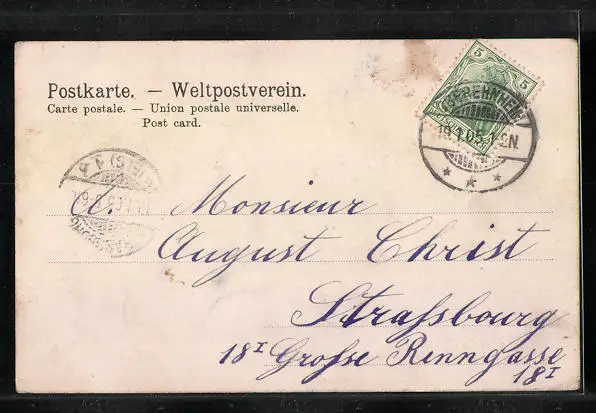 Postkarte. — Weltpostverein.
Carte postale. — Union postale universelle.
Post card.
5 5
19.1.05.1-2N
A. Monsieur
August Christ
Straßbourg
18 I Grosse Renngasse
18 I